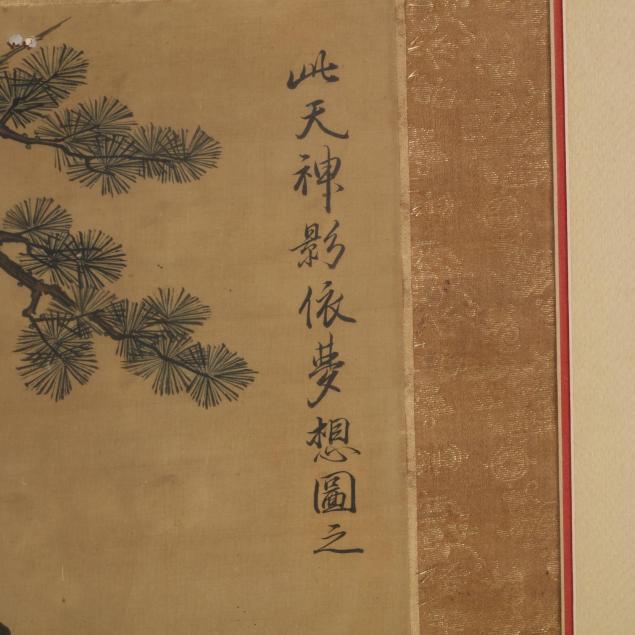 此天神影依夢想圖之